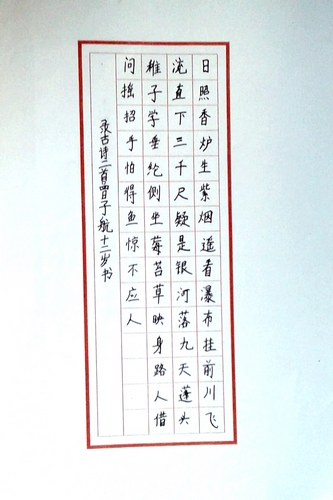 日照香炉生紫烟遥看瀑布挂前川飞
流直下三千尺疑是银河落九天蓬头
稚子学垂纶侧坐莓苔草映身路人借
问摇招手怕得鱼惊不应人
录古诗二首曾子航十二岁书